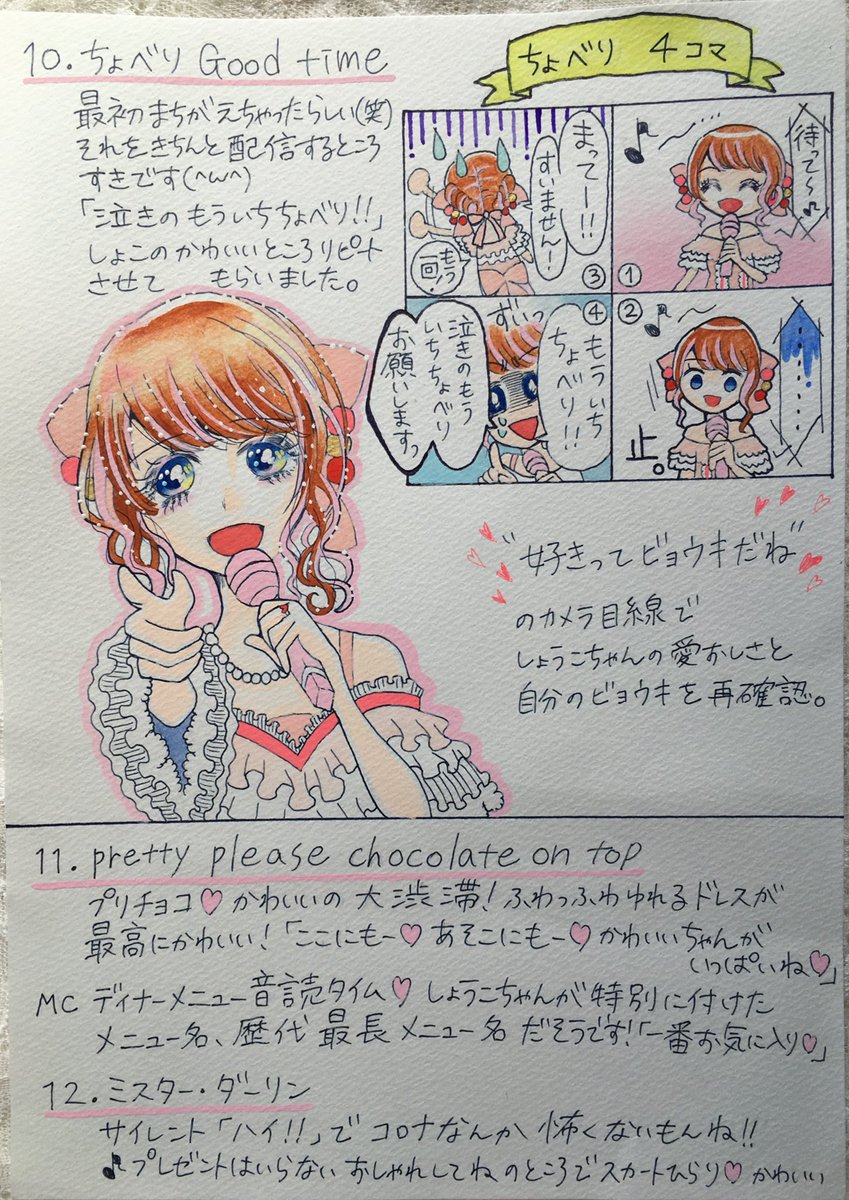 10. ちょべり Good time
最初まちがえちゃったらしい(笑)
それをきちんと配信するところ
すきです(^ω^)
「泣きの もういちちょべり!!」
しょこのかわいいところリピート
させて もらいました。
ちょべり 4コマ
①
待って〜♪
②
止。
③
まってー!!
すいません!
もう一回!
④
ずいっ
もういち
ちょべり!!
泣きのもう
いちちょべり
お願いしますっ
"好きってビョウキだね"
のカメラ目線で
しょうこちゃんの愛おしさと
自分のビョウキを再確認。
11. pretty please chocolate on top
プリチョコ♡かわいいの大渋滞!ふわっふわゆれるドレスが
最高にかわいい!「ここにもー♡あそこにもー♡かわいいちゃんが
いっぱいね♡」
MC ディナーメニュー音読タイム♡しょうこちゃんが特別に付けた
メニュー名、歴代最長メニュー名だそうです!「一番お気に入り♡」
12. ミスター・ダーリン
サイレント「ハイ!!」でコロナなんか怖くないもんね!!
♪プレゼントはいらない おしゃれしてね のところでスカートひらり♡かわいい